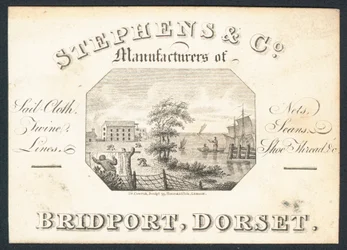 STEPHENS & Co.
Manufacturers of
Sail Cloth,
Twine &
Lines.
Nets,
Seans,
Shoe Thread &c.
BRIDPORT, DORSET.